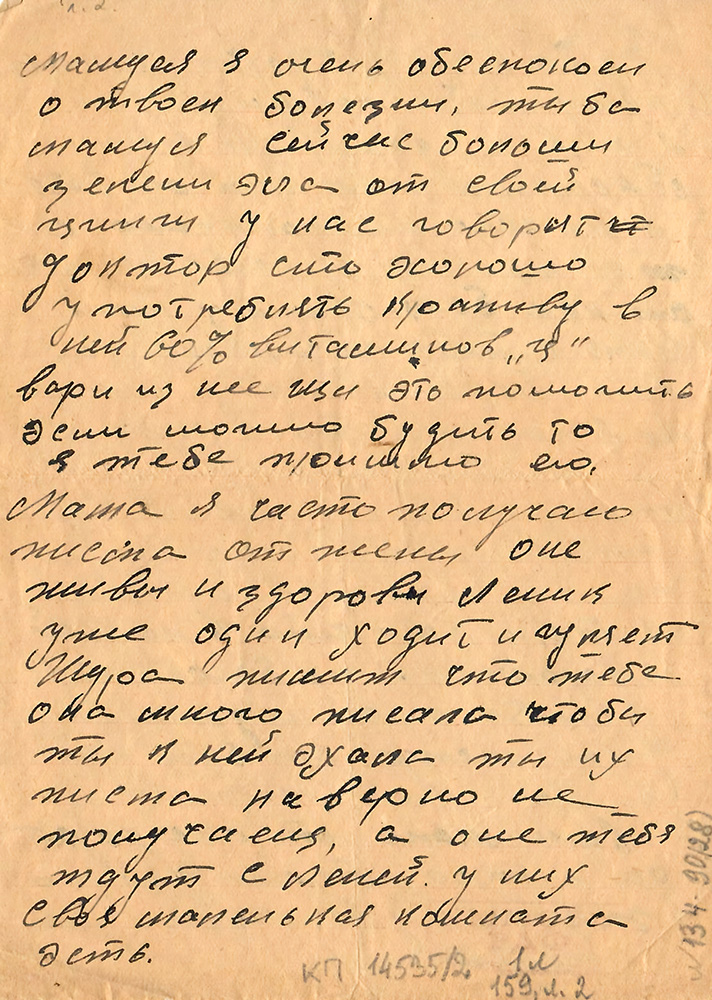 л. 2.
Мамуся я очень обеспокоен
о твоей болезни, ты ба
мамуся сейчас больши
зелени эла от своей
цынги у нас говорит
доктор сто хорошо
употреблять крапиву в
ней 60% витаминов „ц“
вари из нее щи это поможить
эсли можно будить то
я тебе пришлю ею.
Маша я часто получаю
писма от жены оне
живы и здоровы Леник
уже один ходит и гуляет
Шура пишит что тебе
она много писала чтобы
ты к ней эхала ты их
писма наверно не
получаеш, а оне тебя
ждут с Леней. у них
своя маленькая комната
эсть.
КП 14535/2 1л
159, л. 2
и 134-90(28)